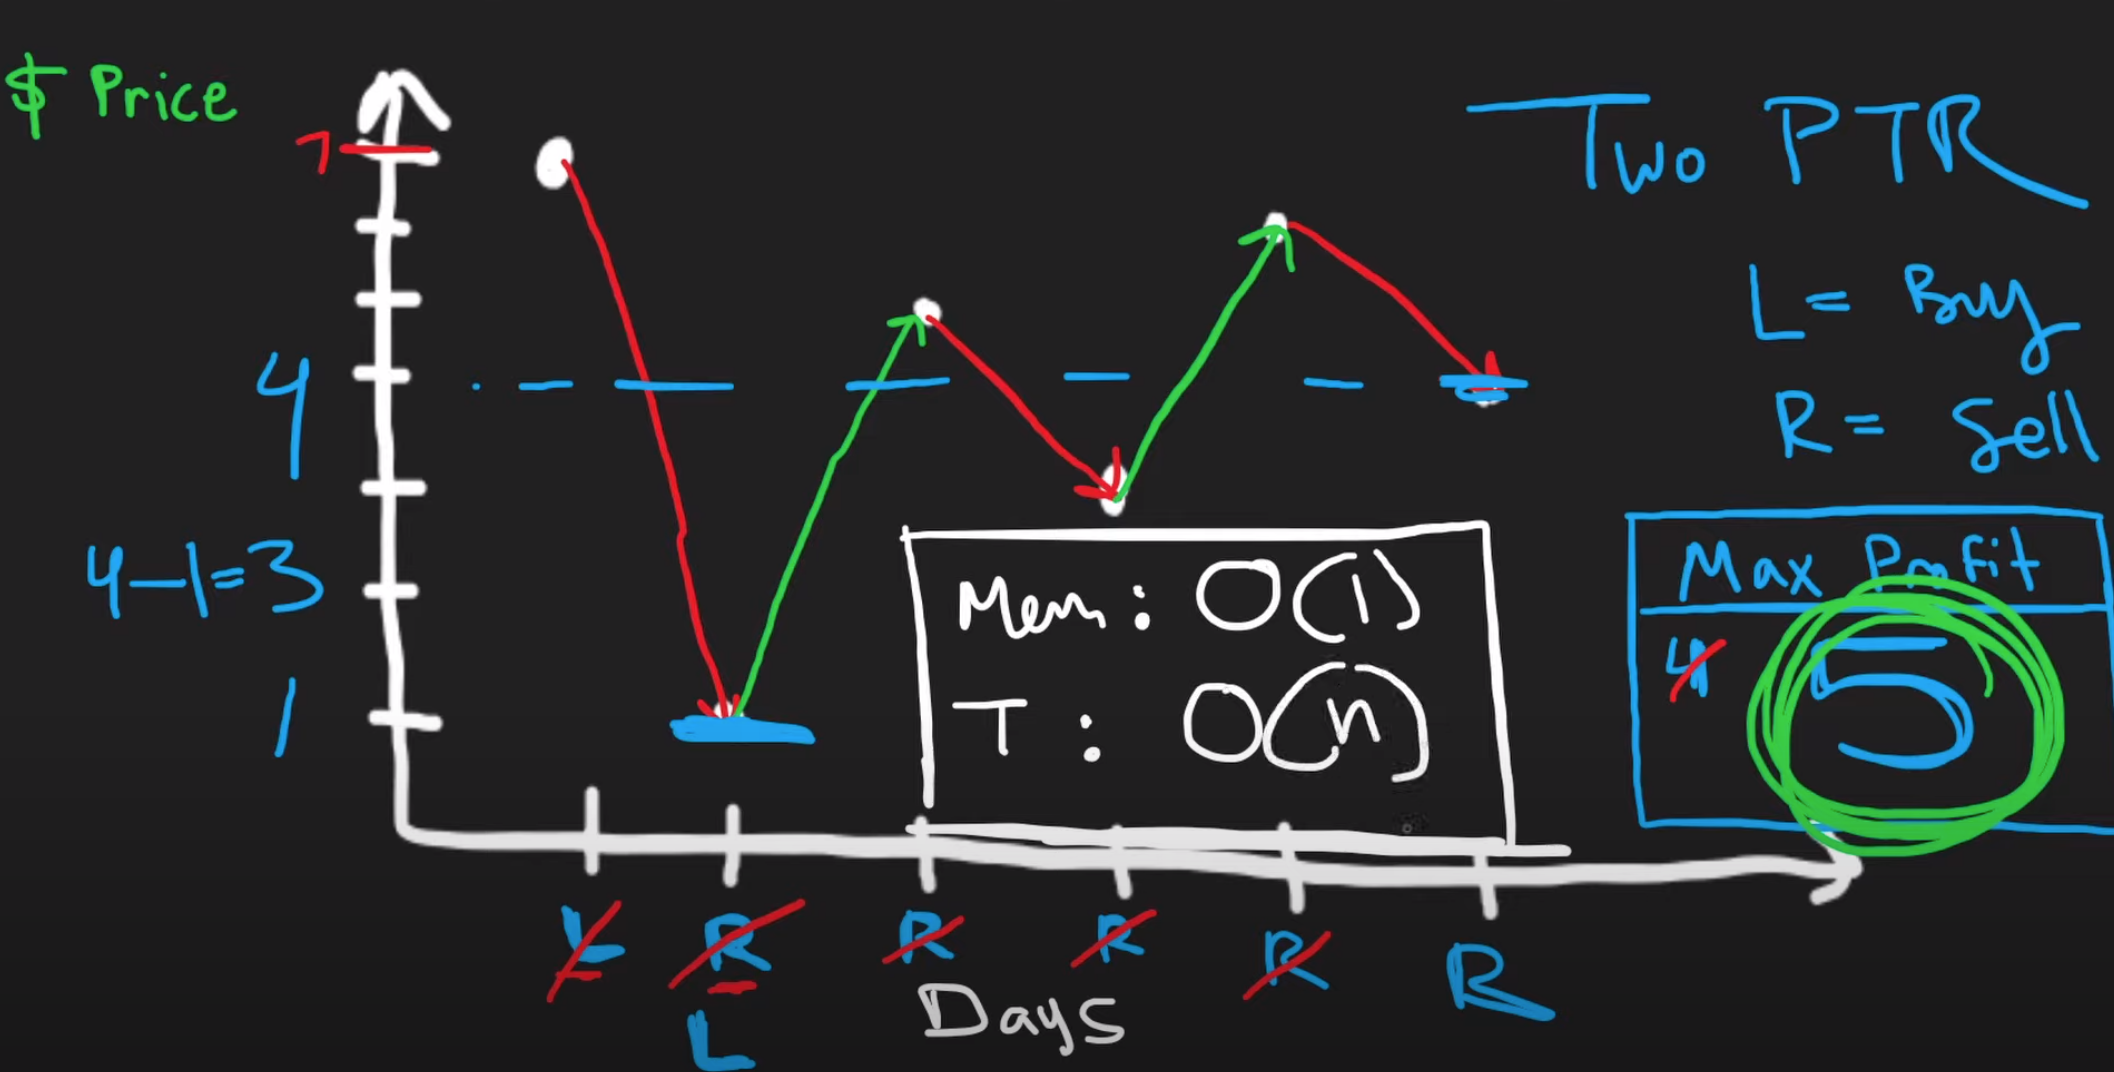 $ Price
7
Two PTR
L = Buy
R = Sell
4
4-1=3
1
Mem: O(1)
T: O(n)
Max Profit
4 5
L R R R R R
L
Days